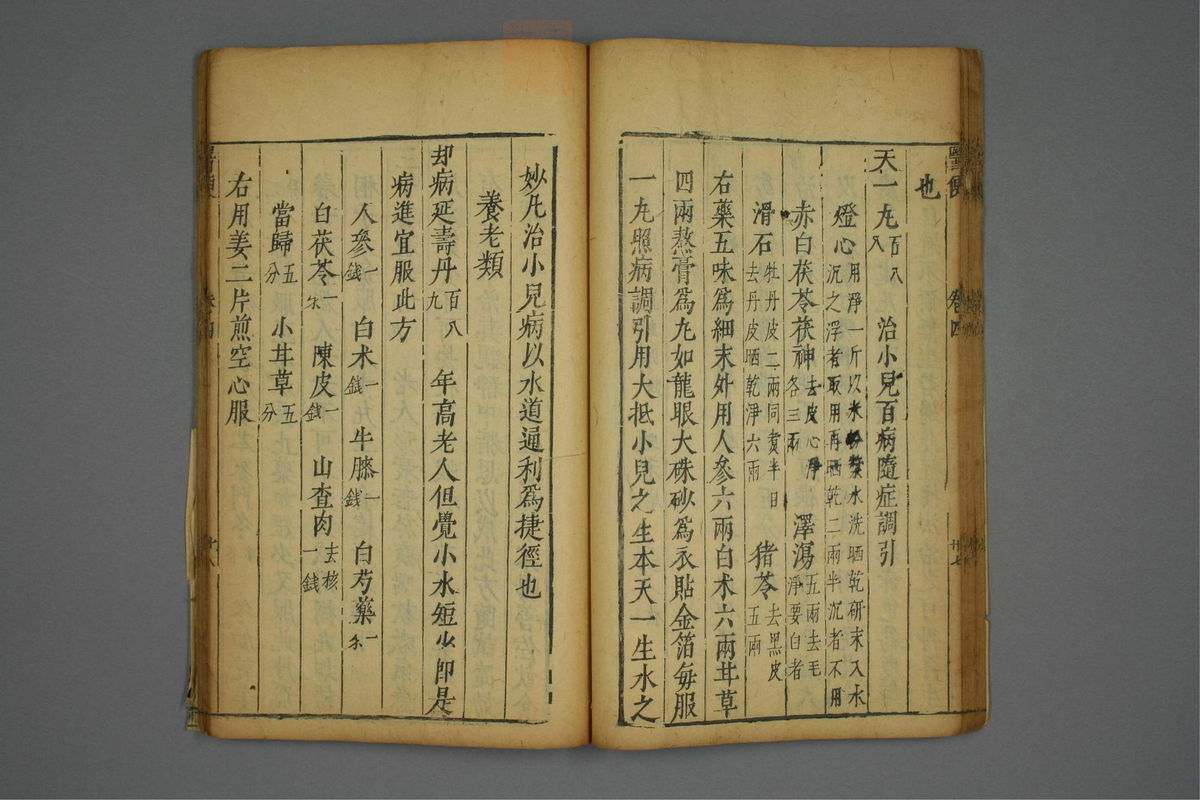 醫便 卷四 廿七
也
天一丸百八八 治小兒百病隨症調引
燈心用淨一斤以米粉漿水洗晒乾研末入水
沉之浮者取用再晒乾二兩半沉者不用
赤白茯苓茯神去皮心淨各三兩 澤瀉五兩去毛淨要白者
滑石牡丹皮二兩同煑半日去丹皮晒乾淨六兩 猪苓去黑皮五兩
右藥五味爲細末外用人參六兩白术六兩甘草
四兩熬膏爲丸如龍眼大硃砂爲衣貼金箔每服
一丸照病調引用大抵小兒之生本天一生水之
妙凡治小兒病以水道通利爲捷徑也
養老類
却病延壽丹百八九 年高老人但覺小水短少即是
病進宜服此方
人參一錢 白术一錢 牛膝一錢 白芍藥一錢
白茯苓一錢 陳皮一錢 山查肉去核一錢
當歸五分 小甘草五分
右用姜二片煎空心服